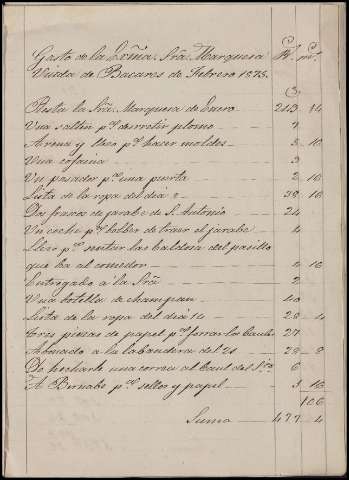 Gasto de la Exma. Sra. Marquesa Rs. ms.
Viuda de Bacares de Febrero 1875.
Resta la Sra. Marquesa de Enero 213 14
Una saltin pa. derretir plomo
Arena y Yeso pa. hacer moldes 3 10
Una cofaina 3
Un pasador pa. una puerta 2 16
Lista de la ropa del dia 2 39 16
Dos frascos de jarabe de S. Antonio 24
Un coche pa. bolber de traer el jarabe 4
Yeso pa. sentar las baldosa del pasillo
que ba al comedor 4 16
Entregado á la Sra. 2
Una botella de champan 40
Lista de la ropa del dia 14 20 4
tres piezas de papel pa. forrar la baul 27
Abonado a la labandera del 21 28 8
De hecharle una correa al baul del 6
A Bernabe pa. sellos y papel 3 16
106
Suma 477 4